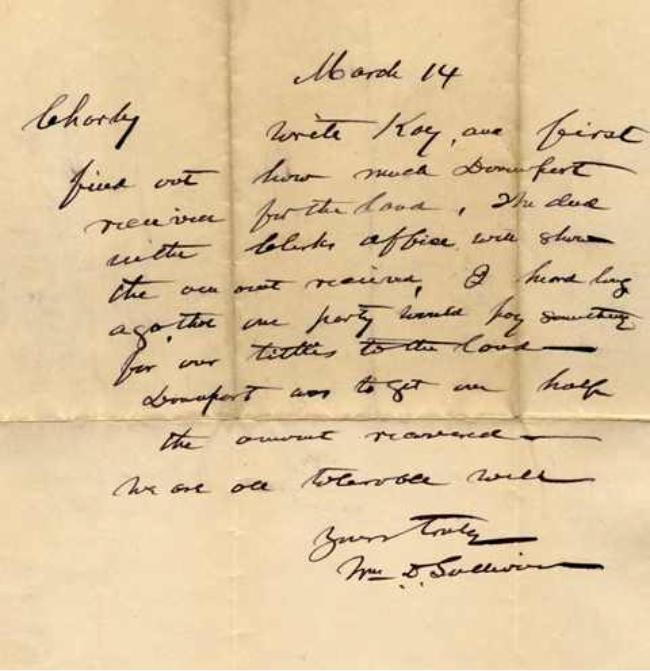 March 14
Charly write Kay, and first
find out how much Davenport
received for the land, The deed
in the Clerks office will show
the amount received, I heard long
ago that one party would pay something
for our tittles to the land
Davenport was to get one half
the amount received
We are all tolerable well
Yours Truly
Wm D. Sullivan